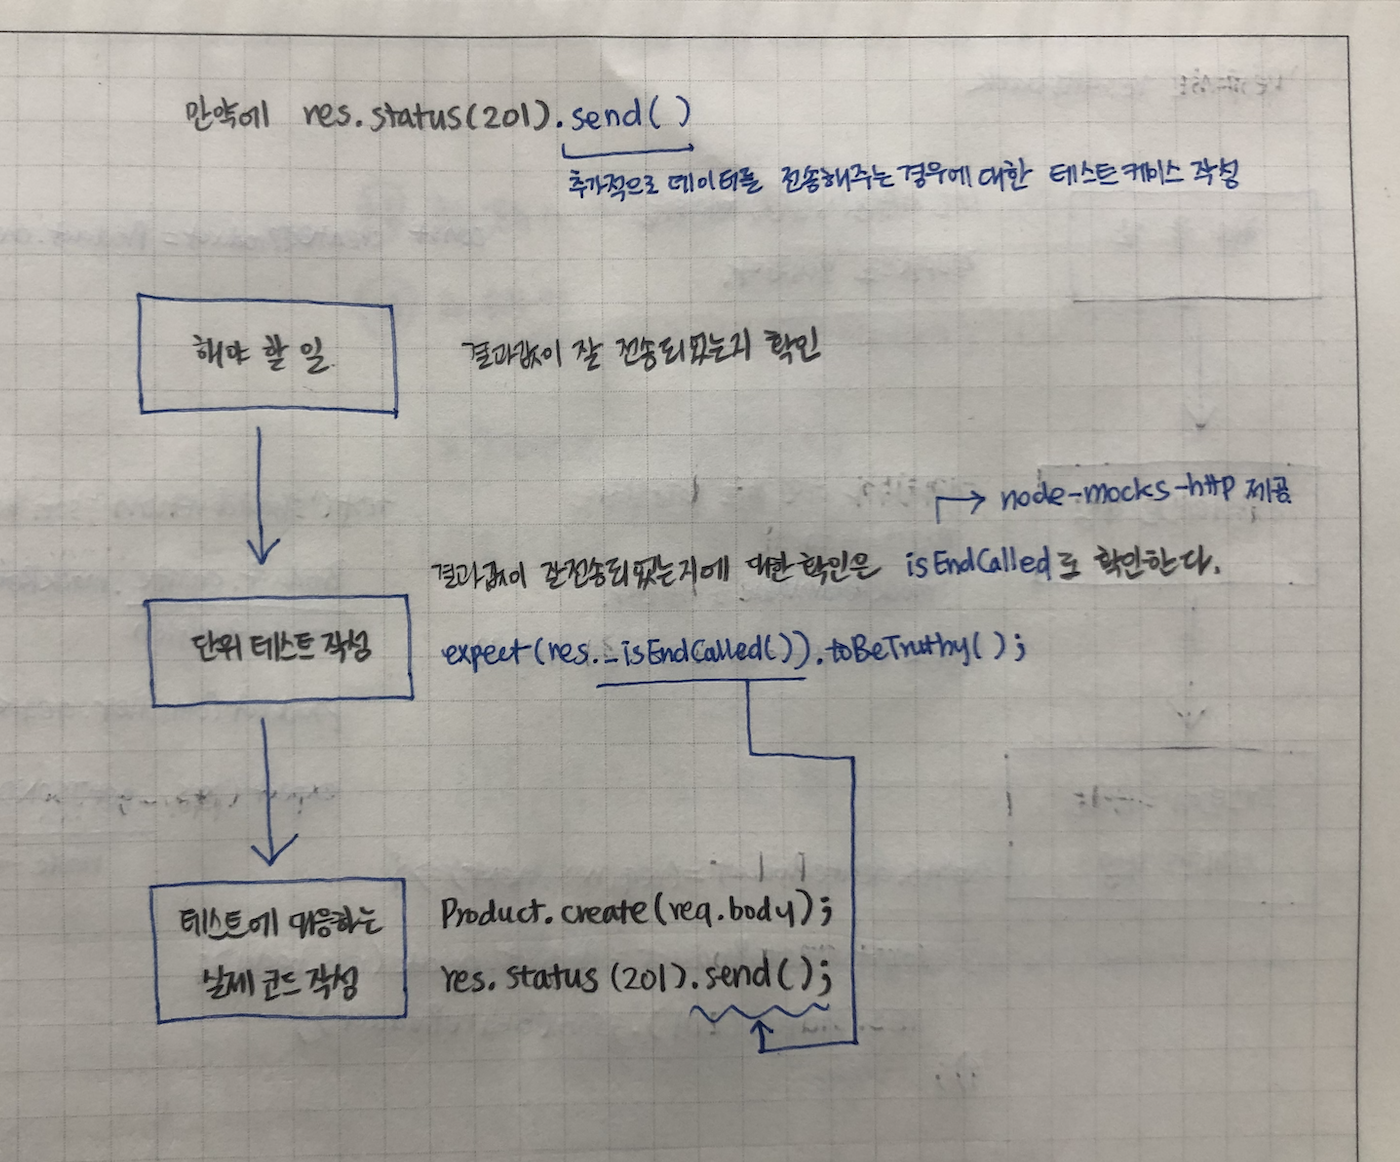 만약에 res.status(201).send()
추가적으로 데이터를 전송해주는 경우에 대한 테스트케이스 작성
해야 할 일.
결과값이 잘 전송되었는지 확인
node-mocks-http 제공
결과값이 잘전송되었는지에 대한 확인은 isEndCalled로 확인한다.
단위 테스트 작성
expect(res._isEndCalled()).toBeTruthy();
테스트에 대응하는
실제 코드 작성
Product.create(req.body);
res.status(201).send();